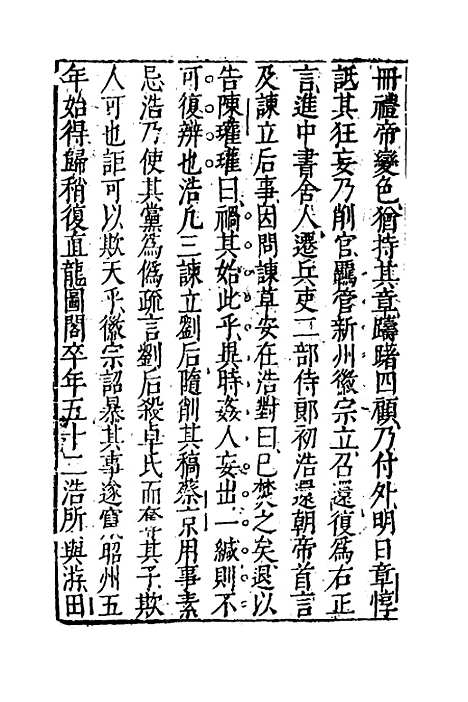 冊禮帝變色猶持其章躊躇四顧乃付外明日章惇
詆其狂妄乃削官羈管新州徽宗立召還復爲右正
言進中書舍人遷兵吏二部侍郞初浩還朝帝首言
及諫立后事因問諫草安在浩對曰已焚之矣退以
告陳瓘瓘曰禍其始此乎異時姦人妄出一緘則不
可復辨也浩凡三諫立劉后隨削其稿蔡京用事素
忌浩乃使其黨爲僞疏言劉后殺卓氏而奪其子欺
人可也詎可以欺天乎徽宗詔暴其事遂竄昭州五
年始得歸稍復直龍圖閣卒年五十二浩所與游田